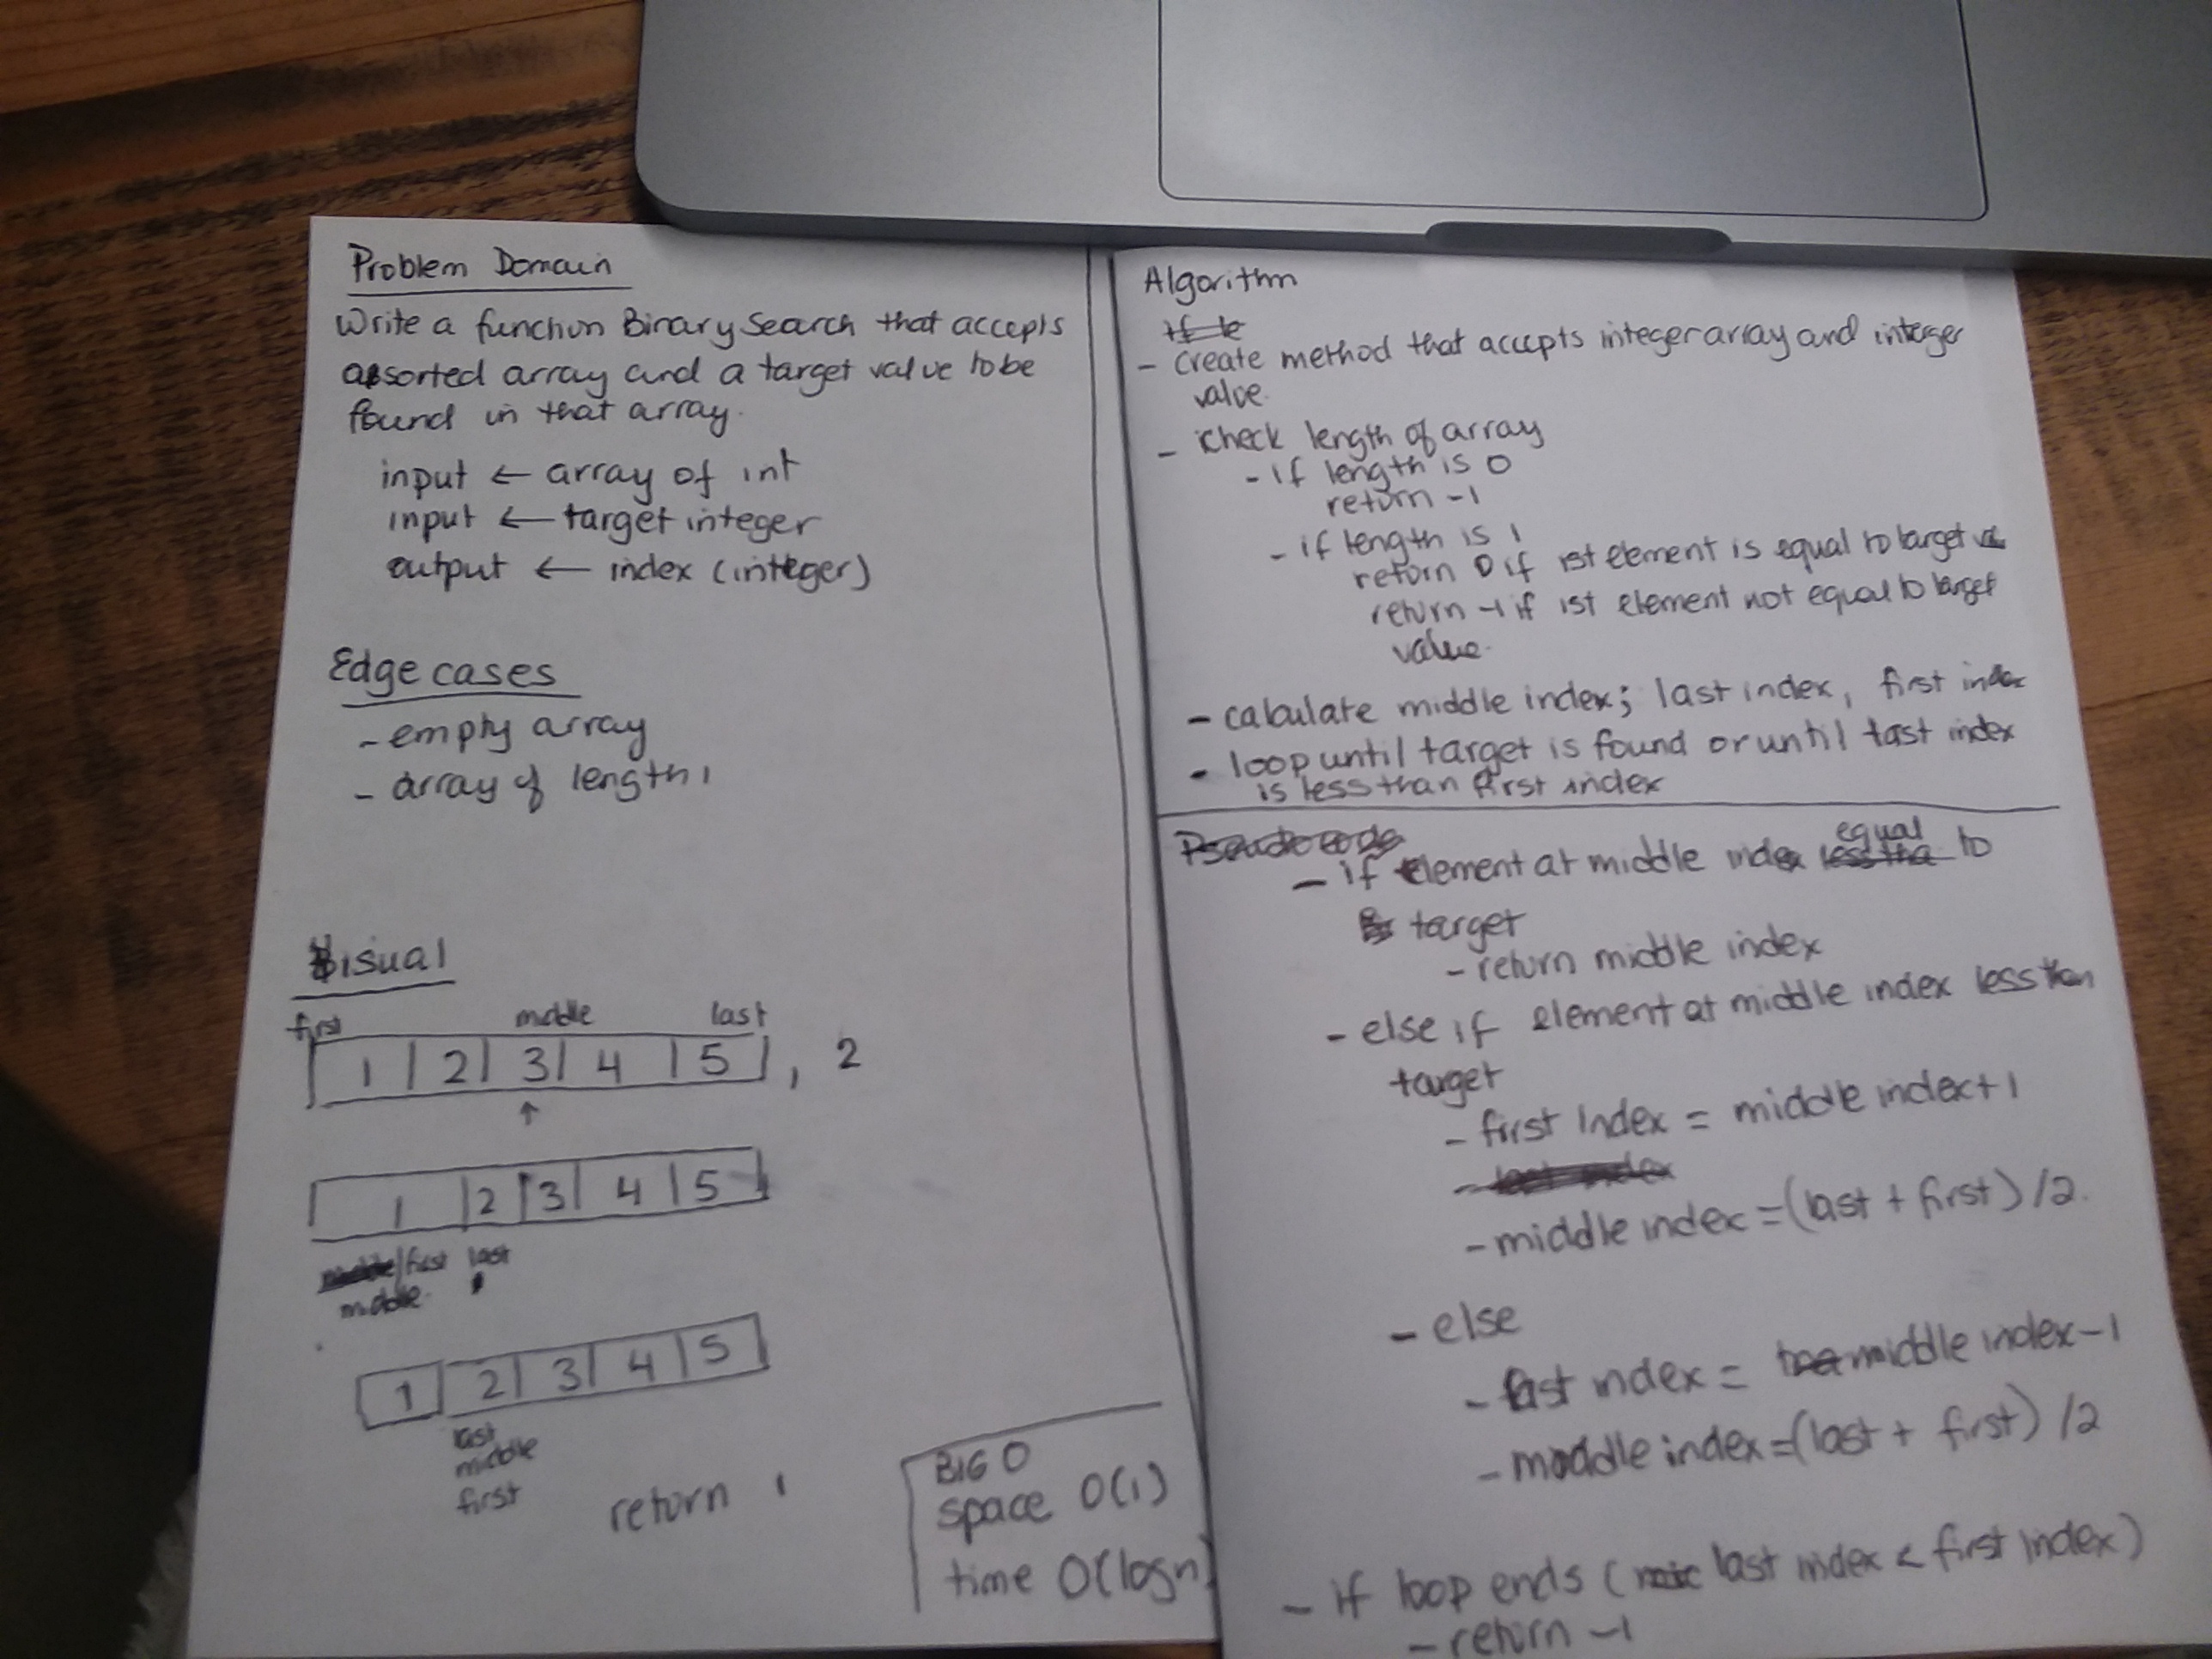 Problem Domain
Write a function Binary Search that accepts
a sorted array and a target value to be
found in that array.
input ← array of int
input ← target integer
output ← index (integer)
Edge cases
- empty array
- array of length 1
Visual
first middle last
1 2 3 4 5 , 2
↑
1 2 3 4 5
first last
middle
1 2 3 4 5
last
middle
first
return 1
BIG O
space O(1)
time O(logn)
Algorithm
- create method that accepts integer array and integer
value.
- check length of array
- if length is 0
return -1
- if length is 1
return 0 if 1st element is equal to target
return -1 if 1st element not equal to target
value.
- calculate middle index; last index, first index
- loop until target is found or until last index
is less than first index
Pseudocode
- if element at middle index equal to
target
- return middle index
- else if element at middle index less than
target
- first index = middle index + 1
- last index
- middle index = (last + first) /2.
- else
- last index = middle index - 1
- middle index = (last + first) /2
- if loop ends ( last index < first index)
- return -1